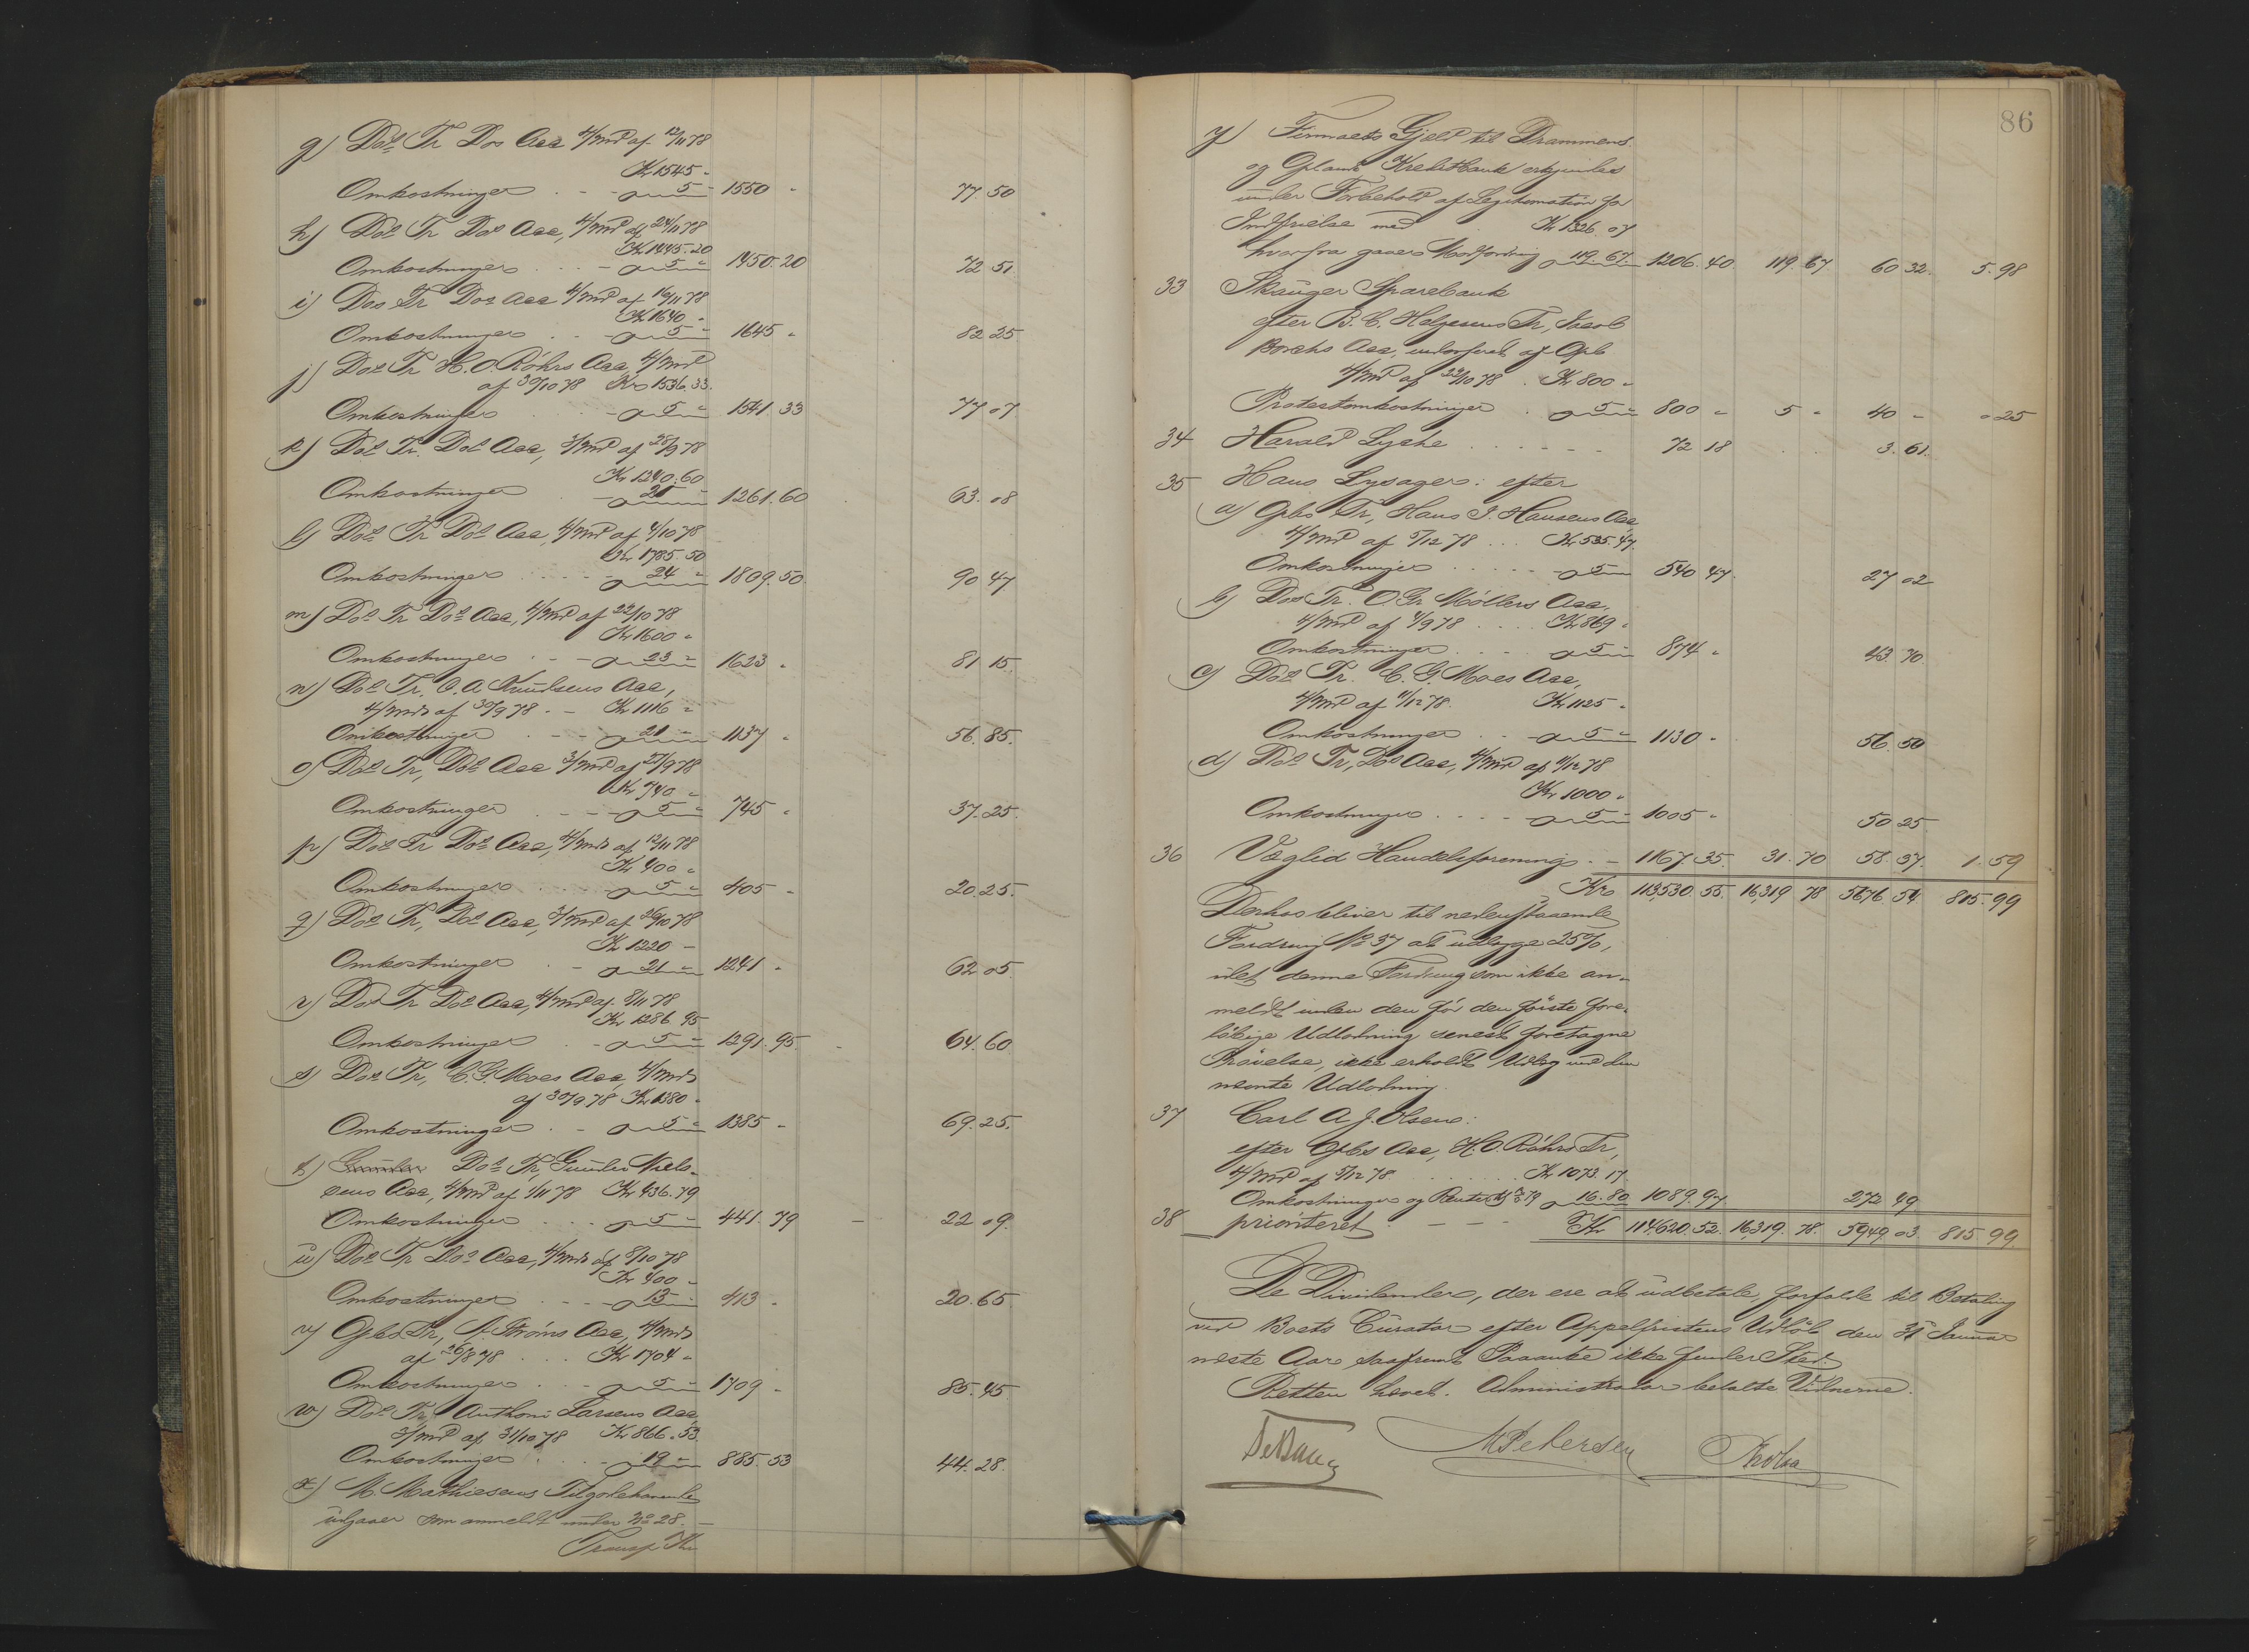 g) Do's Tr Dos Acc 4/Md af 12/11 78
Kr 1545 "
Omkostninger . - - " 5 " 1550 " 77 50
h) Do's Tr Do's Acc, 4/Md af 24/11 78
Kr 1445. 20
Omkostninger . . - " 5 " 1450. 20 72 51
i) Dos Tr Dos Acc 4/Md af 16/11 78
Kr 1640 "
Omkostninger . . - " 5 " 1645 " 82 25
j) Do's Tr H. O. Röhrs Acc, 4/Md
af 30/10 78 Kr 1536. 33.
Omkostninger - " 5 " 1541. 33 77 07
k) Do's Tr. Do's Acc, 3/Md af 28/9 78
Kr 1240. 60
Omkostninger - " 21 " 1261. 60 63. 08
l) Do's Tr Do's Acc, 4/Md af 4/10 78
Kr 1785. 50
Omkostninger . . . " 24 " 1809. 50 90 47
m) Do's Tr Do's Acc, 4/Md af 22/10 78
Kr 1600 "
Omkostninger . - - " 23 " 1623 " 81 15.
n) Do's Tr. O. A. Knudsens Acc,
4/Mds af 30/9 78 . - Kr 1116 "
Omkostninger . - - " 21 " 1137 " 56. 85.
o) Do's Tr, Do's Acc 3/Md af 27/9 78
Kr 740 "
Omkostninger . - - " 5 " 745 " 37. 25.
p) Do's Tr Do's Acc, 4/Mds af 12/11 78
Kr 400 "
Omkostninger . . . " 5 " 405 " 20. 25.
q) Do's Tr, Do's Acc, 3/Md af 26/10 78
Kr 1220 -
Omkostninger . - " 21 " 1241 " 62 05.
r) Dos Tr Do's Acc, 4/Md af 8/11 78
Kr 1286 95
Omkostninger . - " 5 " 1291. 95. 64. 60
s) Dos Tr, C. G. Moes Acc, 4/Mds
af 30/9 78 Kr 1380 "
Omkostninger . - " 5 " 1385 " 69. 25.
t) Gunder Do's Tr, Gunder Niels-
sens Acc, 4/Md af 1/11 78 Kr 436. 79
Omkostninger . . . " 5 " 441. 79 - 22 09.
u) Do's Tr Do's Acc, 4/Mds af 8/10 78
Kr 400 "
Omkostninger . . - - " 13 " 413 " 20. 65
v) Gbs Tr, A. Strøms Acc, 4/Mds
af 26/8 78 . . . Kr 1704 "
Omkostninger . . - " 5 " 1709 " 85. 45
w) Do's Tr, Anthon Larsens Acc,
3/Md af 31/10 78 Kr 866. 53.
Omkostninger . . - " 19 " 885. 53 44. 28.
x) M. Mathiesens Tilgodehavende
udgaaer som anmeldt under No 28. -
Transp. Kr
86
y) Firmaets Gjeld til Drammens
og Oplands Kreditbank erkjendes
under Forbehold af Legitimation for
Indfrielse med Kr 1326. 07
hvorfra gaaer Modfordring " 119. 67. 1206. 40 119. 67 60 32. 5. 98
33 Skauger Sparebank
efter B. C. Helgesens Tr, Jacob
Borchs Acc, endosseret af Gbs
4/Md af 22/10 78 . Kr 800 "
Protestomkostninger . " 5 " 800 " 5 " 40 " " 25
34 Harald Lyche . . . . . . 72 18 . . 3. 61.
35 Hans Lysager: efter
a) Gbs Tr, Hans J. Hansens Acc
4/Md af 5/12 78 . . . Kr 535. 47.
Omkostninger . . . . . " 5 " 540 47. 27 02
b) Dos Tr. O. Gr. Møllers Acc.
4/Md af 4/9 78 . . . . Kr 869 "
Omkostninger . . . " 5 " 874 " 43. 70
c) Do's Tr. C. G. Moes Acc,
4/Md af 11/12 78. Kr 1125 "
Omkostninger . . - " 5 " 1130 " 56. 50
d) Do's Tr, Do's Acc, 4/Md af 11/12 78
Kr 1000 "
Omkostninger . . . - " 5 " 1005 " 50 25
36 Væglid Handelsforening . - 1167. 35. 31. 70 58. 37. 1. 59
Kr 113,530. 55. 16,319 78 5676. 54 815. 99
Derhos bliver til nedenstaaende
Fordring No 37 at udlægge 25%,
idet denne Fordring som ikke an-
meldt inden den før den første fore-
løbige Udlodning senest foretagne
Prøvelse, ikke erholdt Udlæg ved den
nævnte Udlodning.
37 Carl A. J. Olsen:
efter Gbs Acc, H. O. Röhrs Tr,
4/Md af 5/12 78 . . . . . . Kr 1073. 17
Omkostninger og Renter " 16. 80 1089. 97 272 49
38 prioriteret - - - Kr 114,620. 52. 16,319. 78. 5949. 03 815. 99.
De Dividender, der ere at udbetale, forfalde til Betaling
ved Boets Curator efter Appelfristens Udløb den 31 Januar
næste Aar, saafremt Paaanke ikke finder Sted.
Retten hævet. Administrator betalte Vidnerne.
M Pedersen